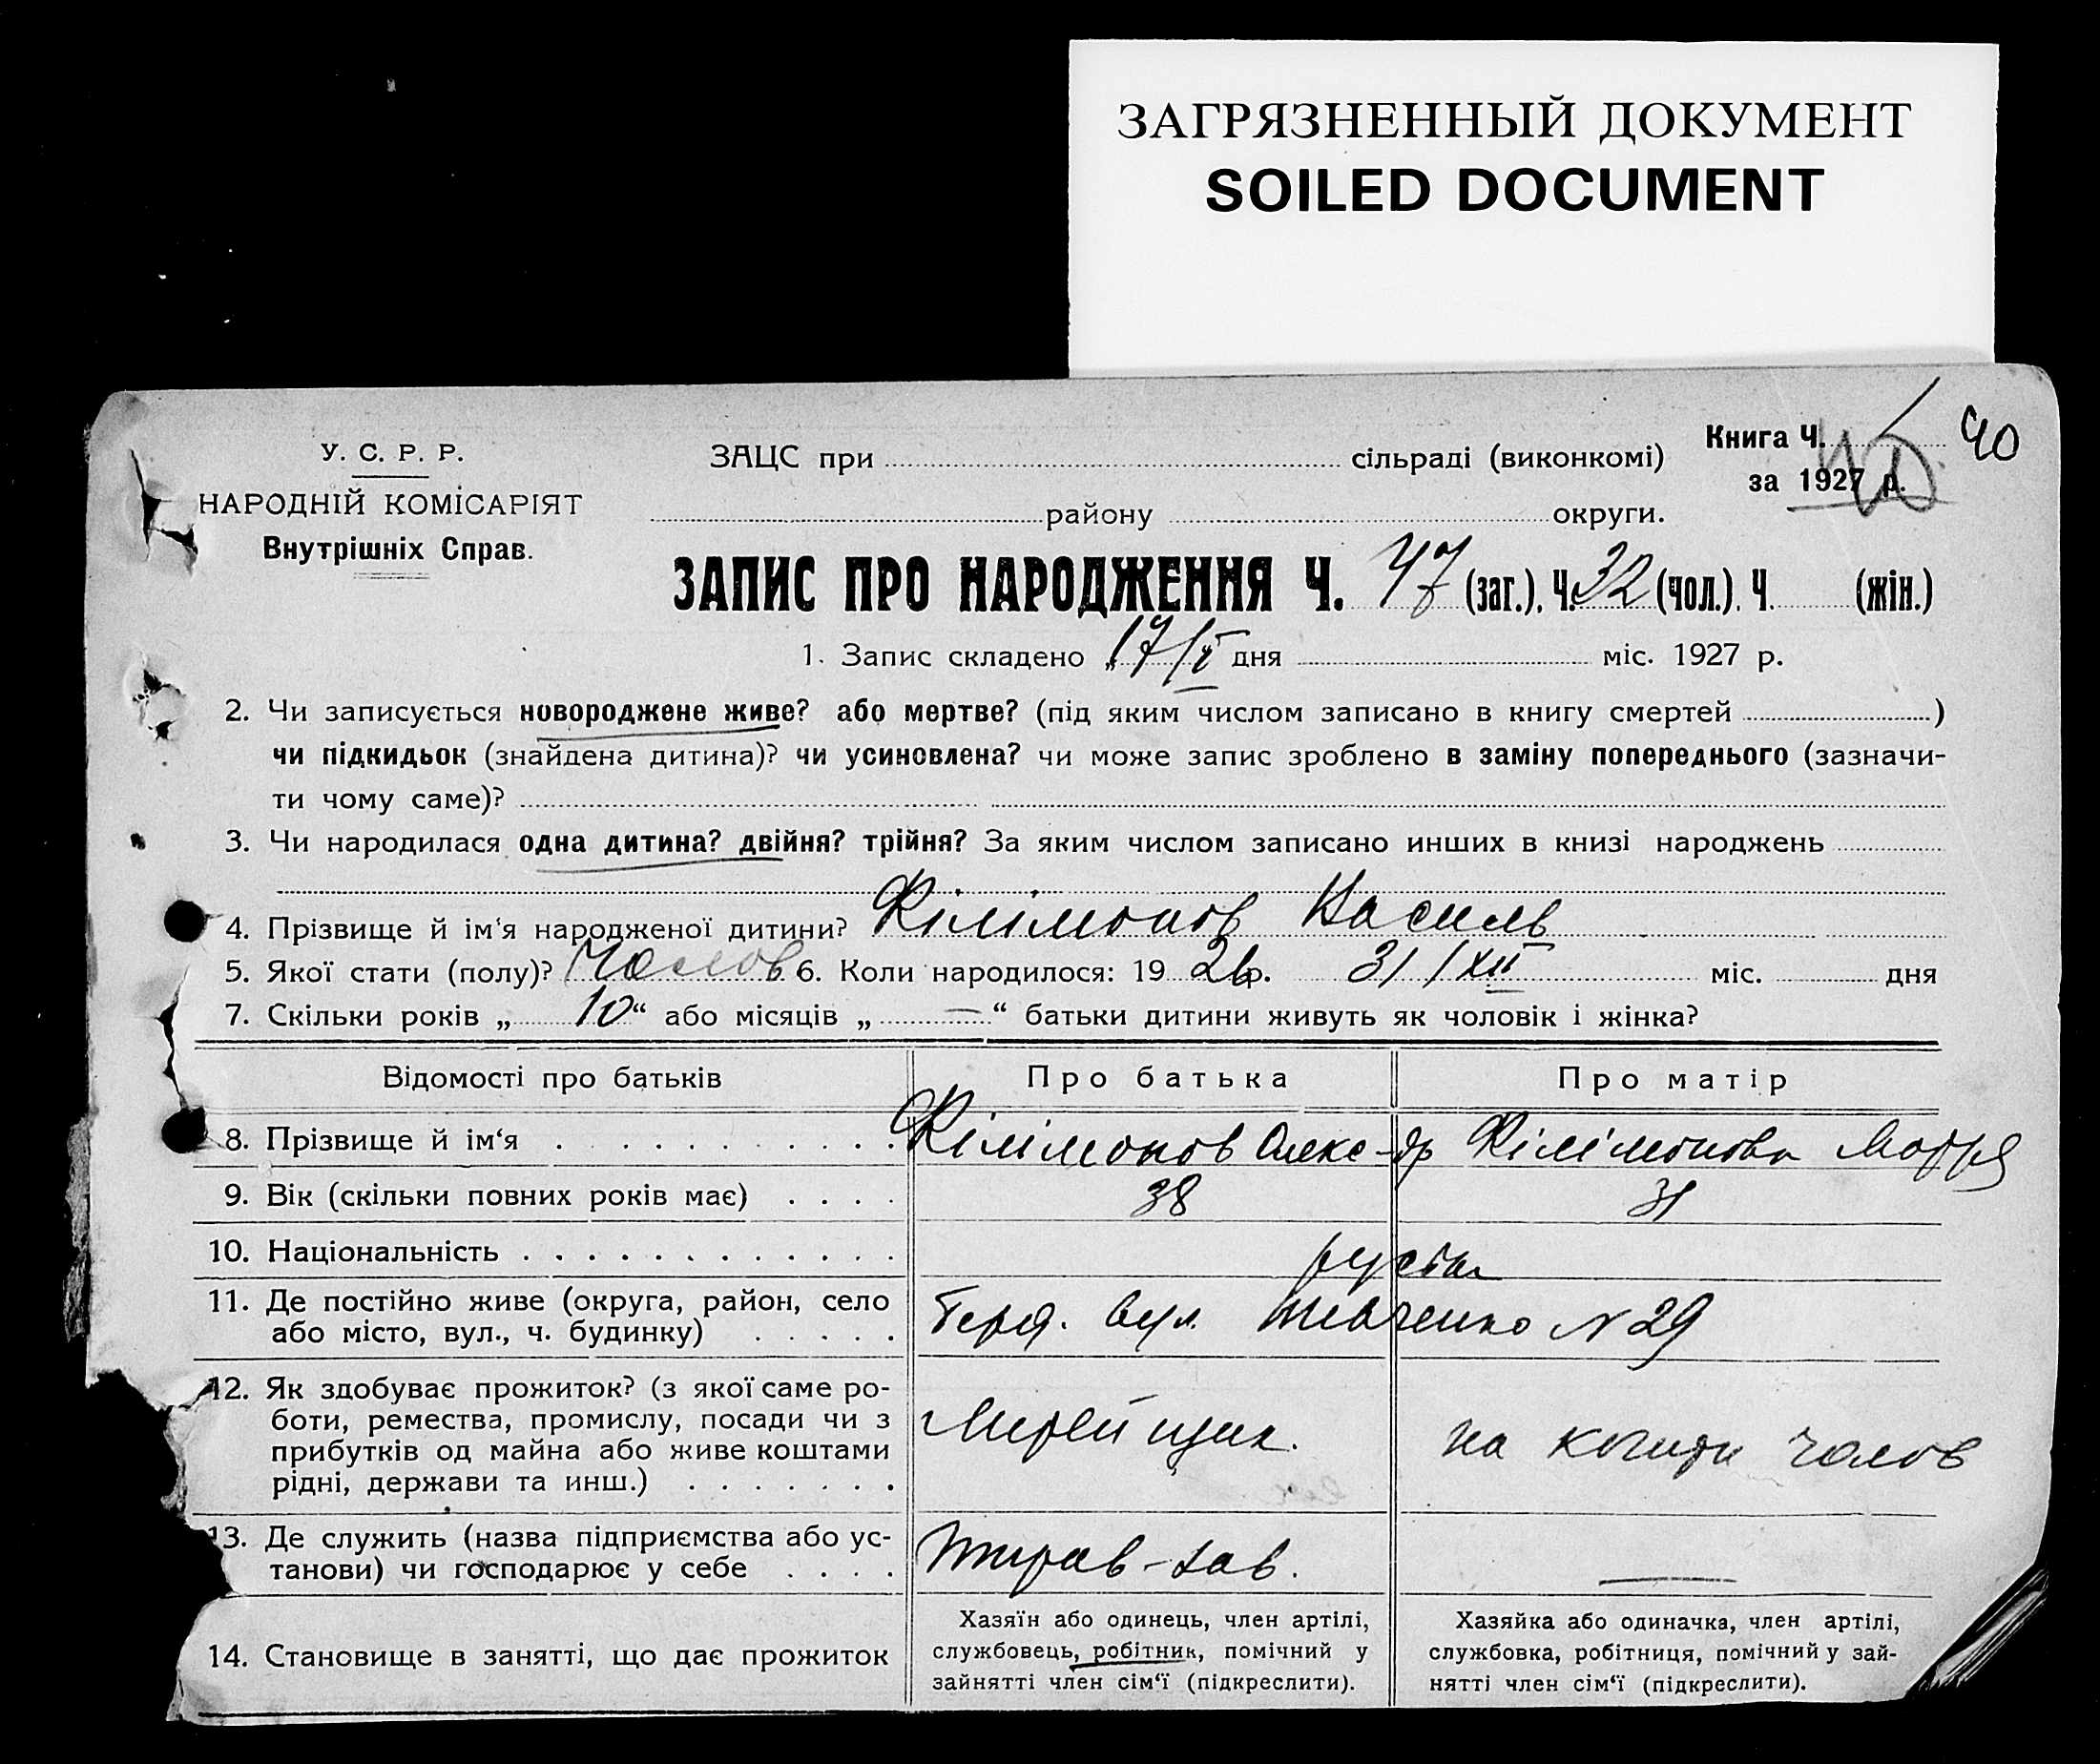 ЗАГРЯЗНЕННЫЙ ДОКУМЕНТ
SOILED DOCUMENT
У. С. Р. Р.
НАРОДНІЙ КОМІСАРІЯТ
Внутрішніх Справ.
ЗАЦС при сільраді (виконкомі)
Книга Ч. 40
за 1927 р.
району округи.
ЗАПИС ПРО НАРОДЖЕННЯ Ч. 47 (заг.). Ч. 32 (чол.). Ч. (жін.)
1. Запис складено „ 17/I дня міс. 1927 р.
2. Чи записується новороджене живе? або мертве? (під яким числом записано в книгу смертей )
чи підкидьок (знайдена дитина)? чи усиновлена? чи може запис зроблено в заміну попереднього (зазначи-
ти чому саме)?
3. Чи народилася одна дитина? двійня? трійня? За яким числом записано инших в книзі народжень
4. Прізвище й ім'я народженої дитини? Філімонов Василь
5. Якої стати (полу)? Чолов. 6. Коли народилося: 19 26 р. 31/XII міс. дня
7. Скільки років „ 10 “ або місяців „ — “ батьки дитини живуть як чоловік і жінка?
Відомості про батьків Про батька Про матір
8. Прізвище й ім'я Філімонов Олекс-др Філімонова Мотря
9. Вік (скільки повних років має) 38 31
10. Національність
11. Де постійно живе (округа, район, село
або місто, вул., ч. будинку) вул. Шевченко N 29
12. Як здобуває прожиток? (з якої саме ро-
боти, ремества, промислу, посади чи з
прибутків од майна або живе коштами
рідні, держави та инш.) на кошти чолов
13. Де служить (назва підприємства або ус-
танови) чи господарює у себе —
14. Становище в занятті, що дає прожиток
Хазяїн або одинець, член артілі,
службовець, робітник, помічний у
зайнятті член сім'ї (підкреслити).
Хазяйка або одиначка, член артілі,
службовка, робітниця, помічний у зай-
нятті член сім'ї (підкреслити).